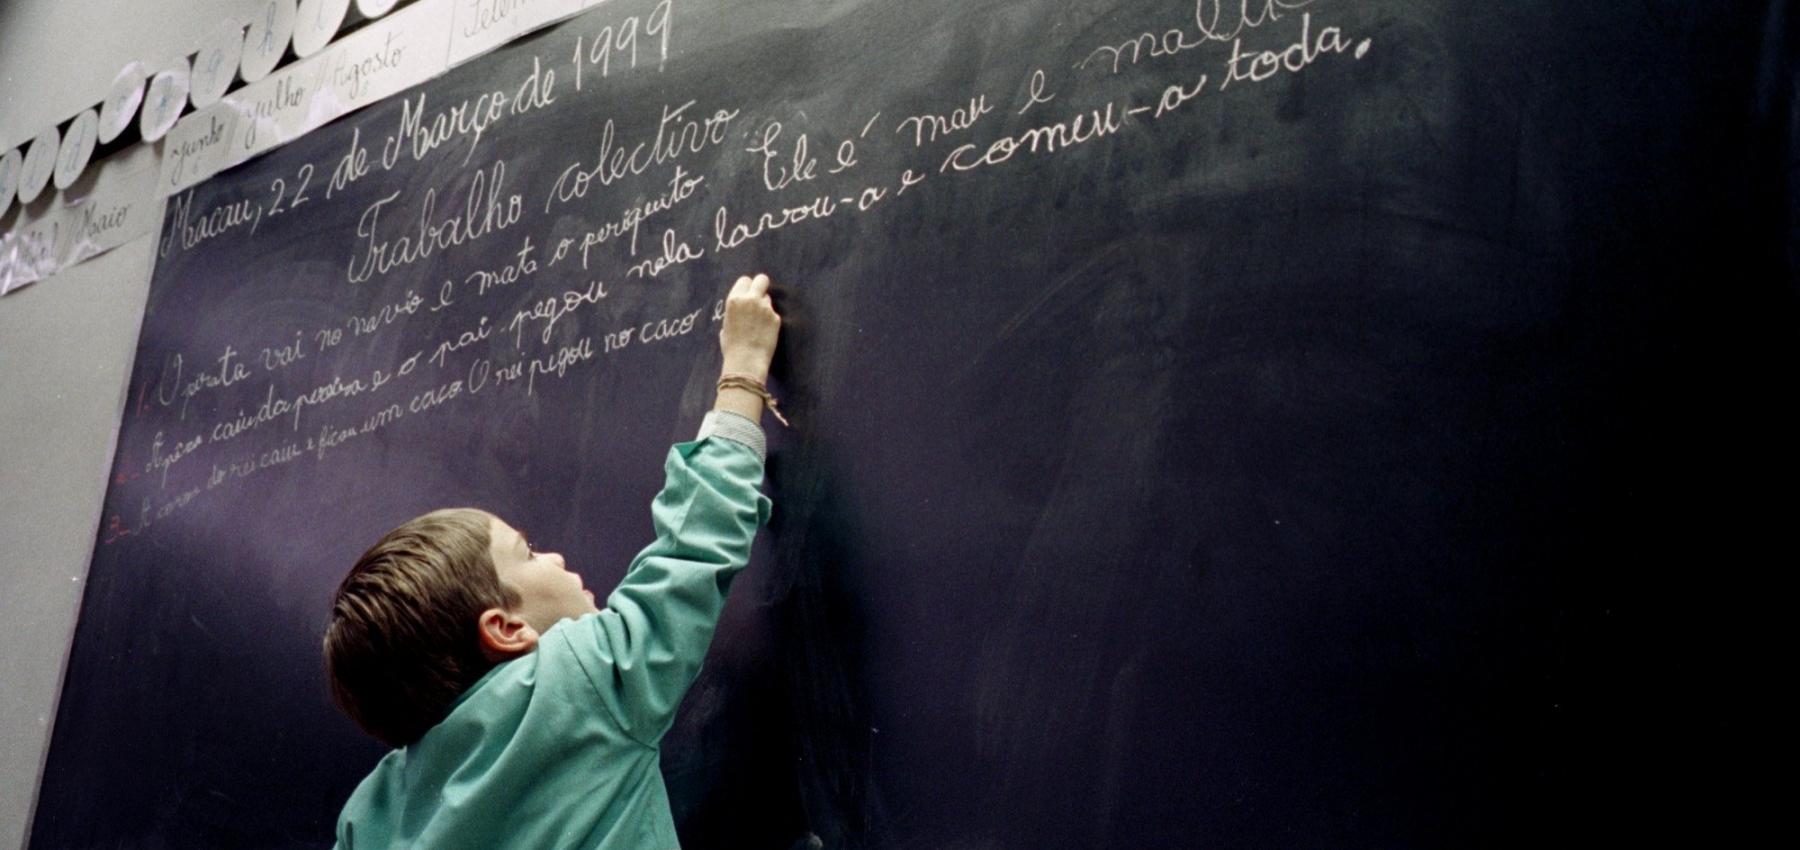 h i
Junho // Julho // Agosto
Abril // Maio
Macau, 22 de Março de 1999
Trabalho colectivo
1. O pirata vai no navio e mata o periquito. Ele é mau e
2. A pêra caiu da pereira e o pai pegou nela lavou-a e comeu-a toda.
3. A coroa do rei caiu e ficou um caco. O rei pegou no caco e